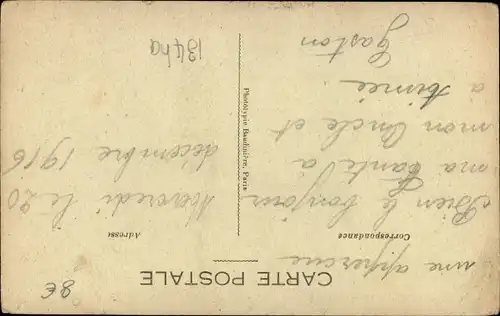 CARTE POSTALE
Correspondance
Adresse
une appercue
Bien le bonjour
ma tante à
mon Oncle et
a Aimée
Gaston
Mercredi le 20
decembre 1916
Phototypie Baudinière, Paris
134ha
8€